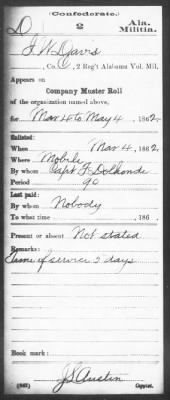 (Confederate.)
D 2 Ala. Militia.
J W Davis
, Co. , 2 Reg't Alabama Vol. Mil.
Appears on
Company Muster Roll
of the organization named above,
for Mar 4 to May 4, 1862.
Enlisted:
When Mar 4, 1862
Where Mobile
By whom Capt F.
Period 90
Last paid:
By whom Nobody
To what time , 186 .
Present or absent Not stated
Remarks:
Term of service days
Book mark:
(642) J S Austin
Copyist.